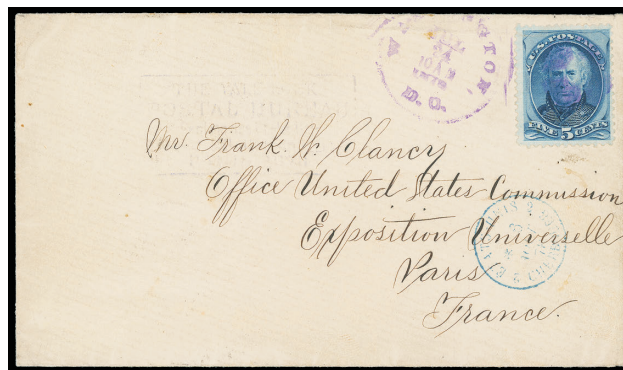 WASHINGTON,
JUL
24
10 AM
1878
D.C.
U.S. POSTAGE.
FIVE 5 CENTS
Mr. Frank. W. Clancy
Office United States Commission
Exposition Universelle
Paris
France.